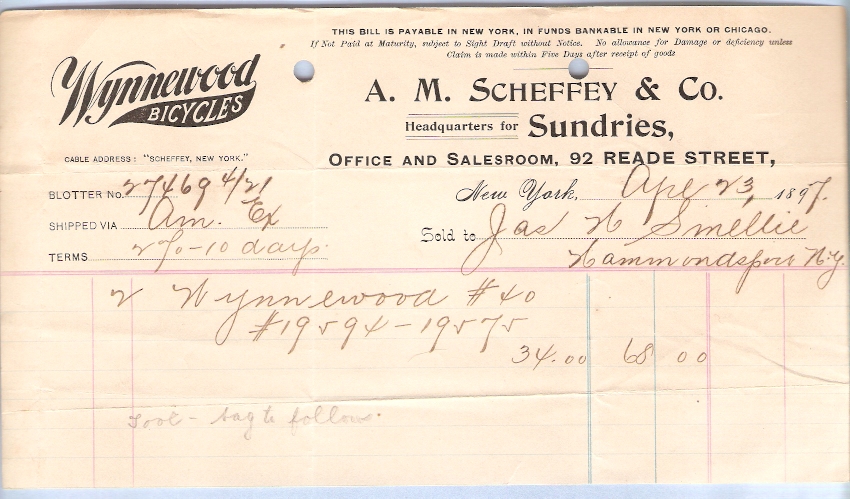 THIS BILL IS PAYABLE IN NEW YORK, IN FUNDS BANKABLE IN NEW YORK OR CHICAGO.
If Not Paid at Maturity, subject to Sight Draft without Notice. No allowance for Damage or deficiency unless
Claim is made within Five Days after receipt of goods
Wynnewood
BICYCLES
A. M. SCHEFFEY & CO.
Headquarters for Sundries,
CABLE ADDRESS: "SCHEFFEY, NEW YORK."
OFFICE AND SALESROOM, 92 READE STREET,
BLOTTER No. 27469 4/21
New York, Apl 23, 1897.
SHIPPED VIA Am. Ex
Sold to Jas H Smellie
TERMS 2%-10 days.
Hammondsport N.Y.
2 Wynnewood #40
#19594-19575
34.00 68 00
Tool - bag to follow.